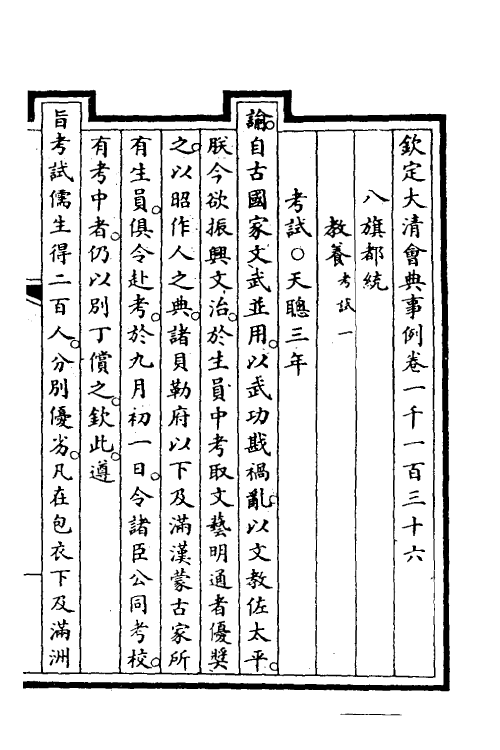 欽定大清會典事例卷一千一百三十六
八旗都統
教養考試一
考試○天聰三年
諭。自古國家文武並用。以武功戡禍亂。以文教佐太平。
朕今欲振興文治。於生員中考取文藝明通者優獎
之。以昭作人之典。諸貝勒府以下及滿漢蒙古家所
有生員。俱令赴考。於九月初一日。令諸臣公同考校。
有考中者。仍以別丁償之。欽此。遵
旨考試儒生得二百人。分別優劣。凡在包衣下及滿洲